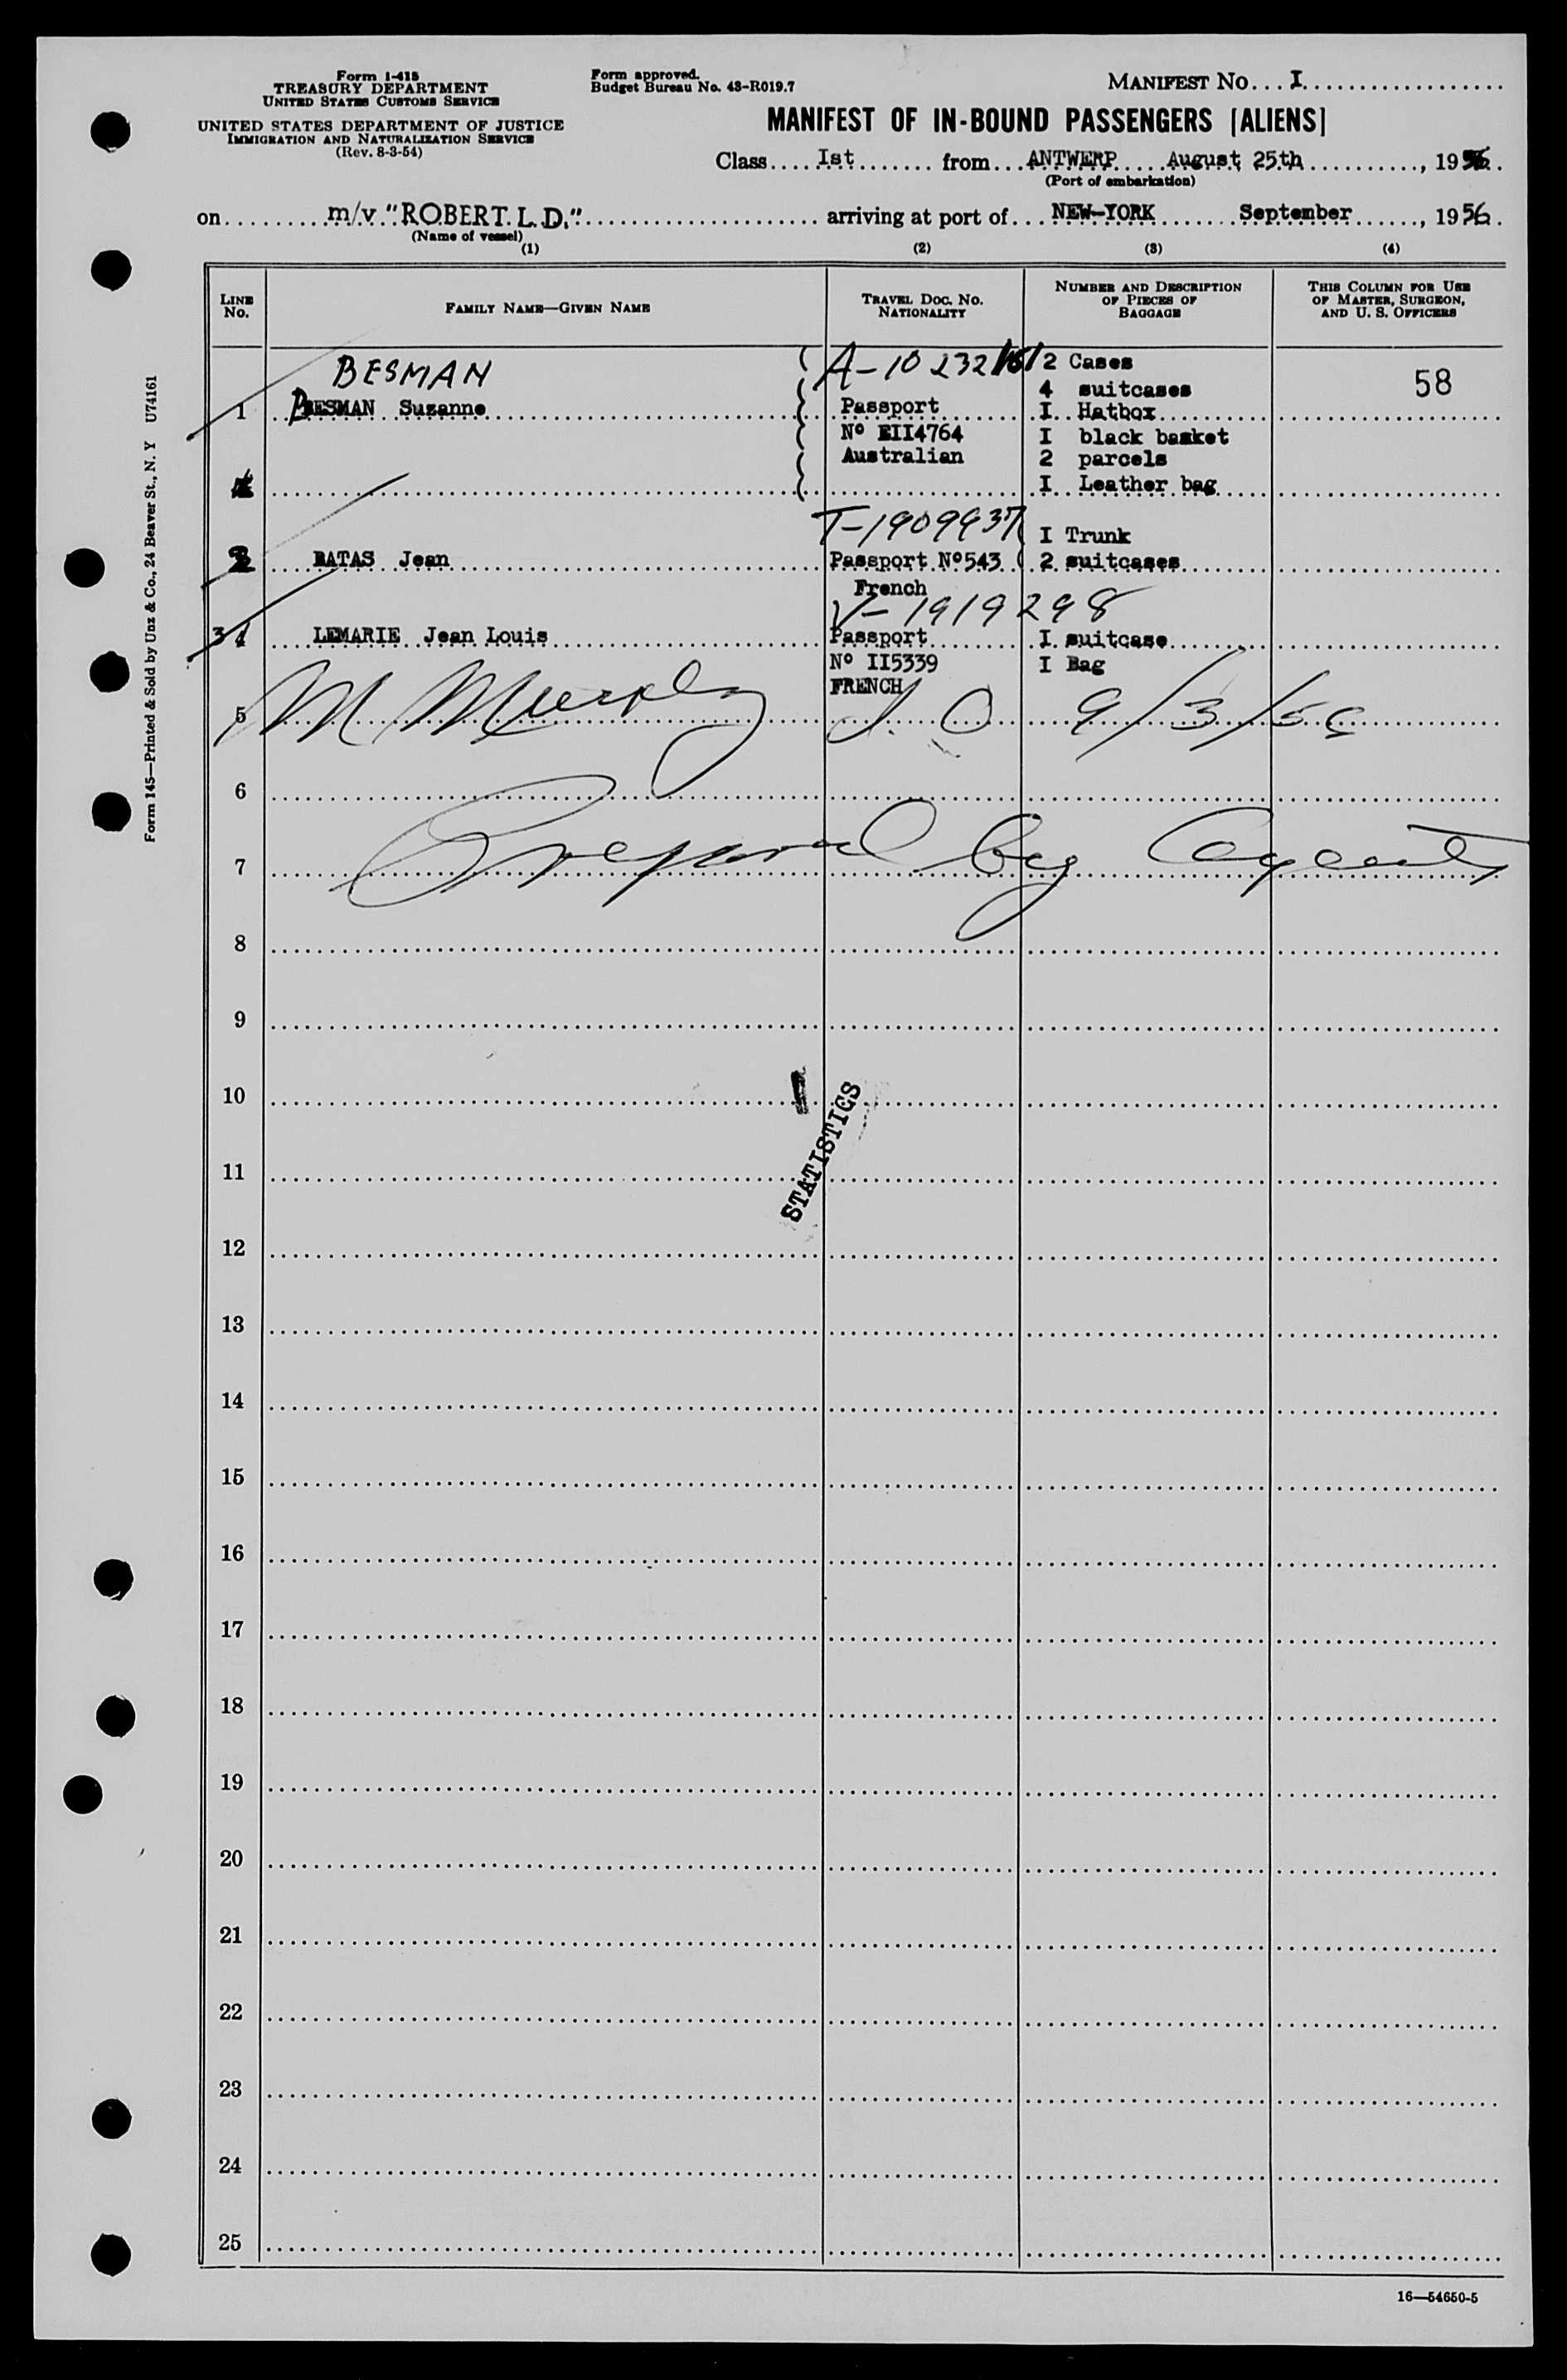 Form I-415
TREASURY DEPARTMENT
UNITED STATES CUSTOMS SERVICE
UNITED STATES DEPARTMENT OF JUSTICE
IMMIGRATION AND NATURALIZATION SERVICE
(Rev. 8-3-54)
Form approved.
Budget Bureau No. 43-R019.7
MANIFEST NO. I
MANIFEST OF IN-BOUND PASSENGERS [ALIENS]
Class Ist from ANTWERP August 25th, 1956
(Port of embarkation)
on m/v "ROBERT L.D." arriving at port of NEW-YORK September, 1956
(Name of vessel)
(1) (2) (3) (4)
LINE No.
FAMILY NAME—GIVEN NAME
TRAVEL DOC. NO. NATIONALITY
NUMBER AND DESCRIPTION OF PIECES OF BAGGAGE
THIS COLUMN FOR USE OF MASTER, SURGEON, AND U. S. OFFICERS
BESMAN A-10 232 151 2 Cases
4 suitcases 58
1 BESMAN Suzanne Passport I Hatbox
Nº EII4764 I black basket
Australian 2 parcels
I Leather bag
T-1909937 I Trunk
2 BATAS Jean Passport Nº543 2 suitcases
French
V-1919298
3 LEMARIE Jean Louis Passport I suitcase
Nº II5339 I Bag
FRENCH
5 M Murphy I. O 9/3/56
6
7 Prepared by Agents
8
9
10
STATISTICS
11
12
13
14
15
16
17
18
19
20
21
22
23
24
25
16—54650-5
Form 145—Printed & Sold by Unz & Co., 24 Beaver St., N. Y U74161